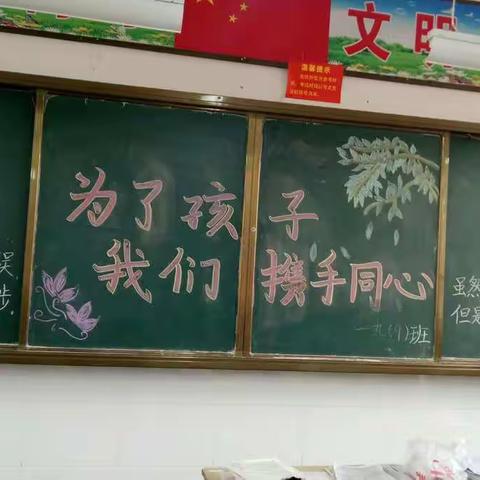 文明
温馨提示
为了孩子
我们携手同心
一九（1）班
误
步，
虽然
但是